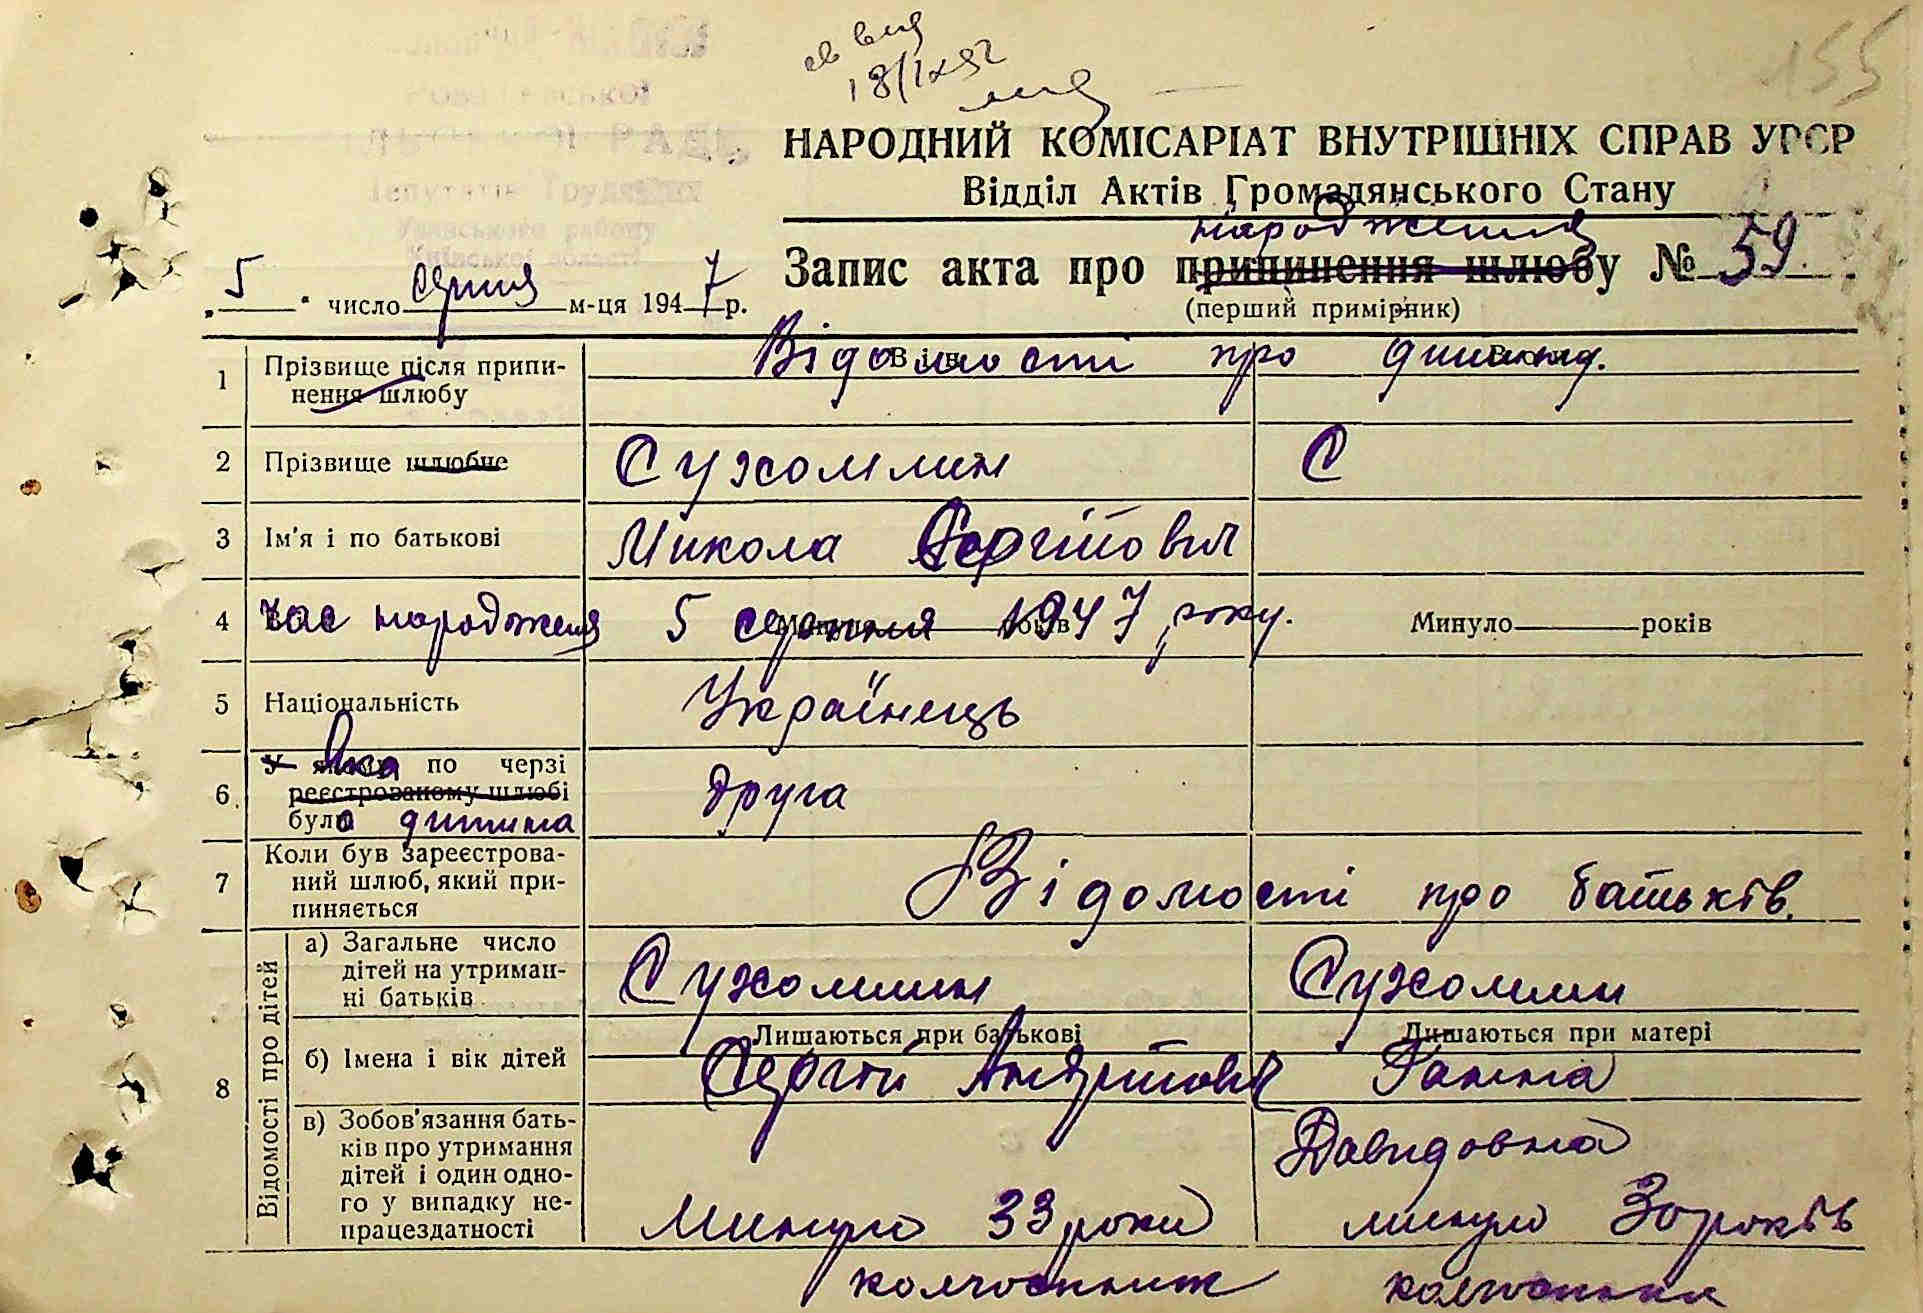 св вид
18/IX 52
155
НАРОДНИЙ КОМІСАРІАТ ВНУТРІШНІХ СПРАВ УРСР
Відділ Актів Громадянського Стану
народження
Запис акта про припинення шлюбу № 59.
(перший примірник)
„ 5 " число серпня м-ця 1947 р.
1 Прізвище після припинення шлюбу
Відомості про дитину.
2 Прізвище шлюбне Сухомлин С
3 Ім'я і по батькові Микола Сергійович
4 Час народження 5 серпня 1947 року. Минуло років
5 Національність Українець
6 У якому Яка по черзі
реєстрованому шлюбі
була дитина
друга
7 Коли був зареєстрова-
ний шлюб, який при-
пиняється
Відомості про батьків.
8 Відомості про дітей
а) Загальне число
дітей на утриман-
ні батьків
Сухомлин Сухомлин
Лишаються при батькові Лишаються при матері
б) Імена і вік дітей Сергій Андрійович Ганна
Давидовна
в) Зобов'язання бать-
ків про утримання
дітей і один одно-
го у випадку не-
працездатності
Минуло 33 роки минуло 30 років
колгоспник колгоспниця